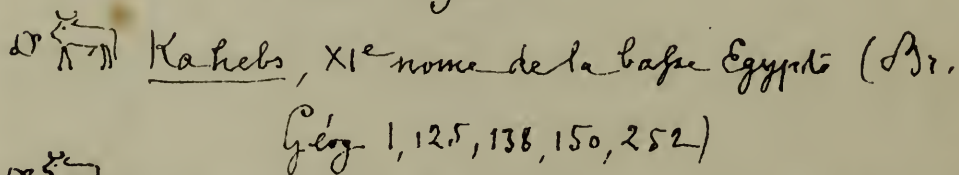 Kahebs, XIe nome de la basse Egypte (Br.
Géog 1, 125, 138, 150, 252)